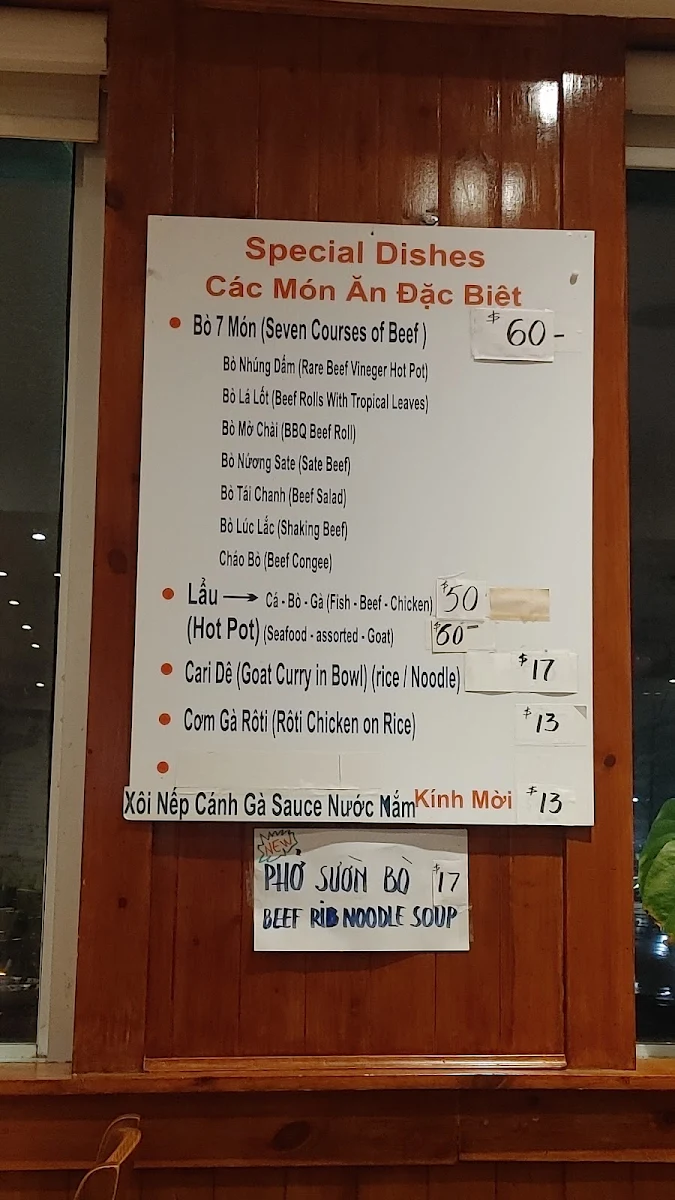 Special Dishes
Các Món Ăn Đặc Biệt
• Bò 7 Món (Seven Courses of Beef ) $60-
Bò Nhúng Dấm (Rare Beef Vineger Hot Pot)
Bò Lá Lốt (Beef Rolls With Tropical Leaves)
Bò Mở Chài (BBQ Beef Roll)
Bò Nứơng Sate (Sate Beef)
Bò Tái Chanh (Beef Salad)
Bò Lúc Lắc (Shaking Beef)
Cháo Bò (Beef Congee)
• Lẩu → Cá - Bò - Gà (Fish - Beef - Chicken) $50
(Hot Pot) (Seafood - assorted - Goat) $60-
• Cari Dê (Goat Curry in Bowl) (rice / Noodle) $17
• Cơm Gà Rôti (Rôti Chicken on Rice) $13
•
Xôi Nếp Cánh Gà Sauce Nước Mắm Kính Mời $13
NEW
PHỞ SƯỜN BÒ $17
BEEF RIB NOODLE SOUP